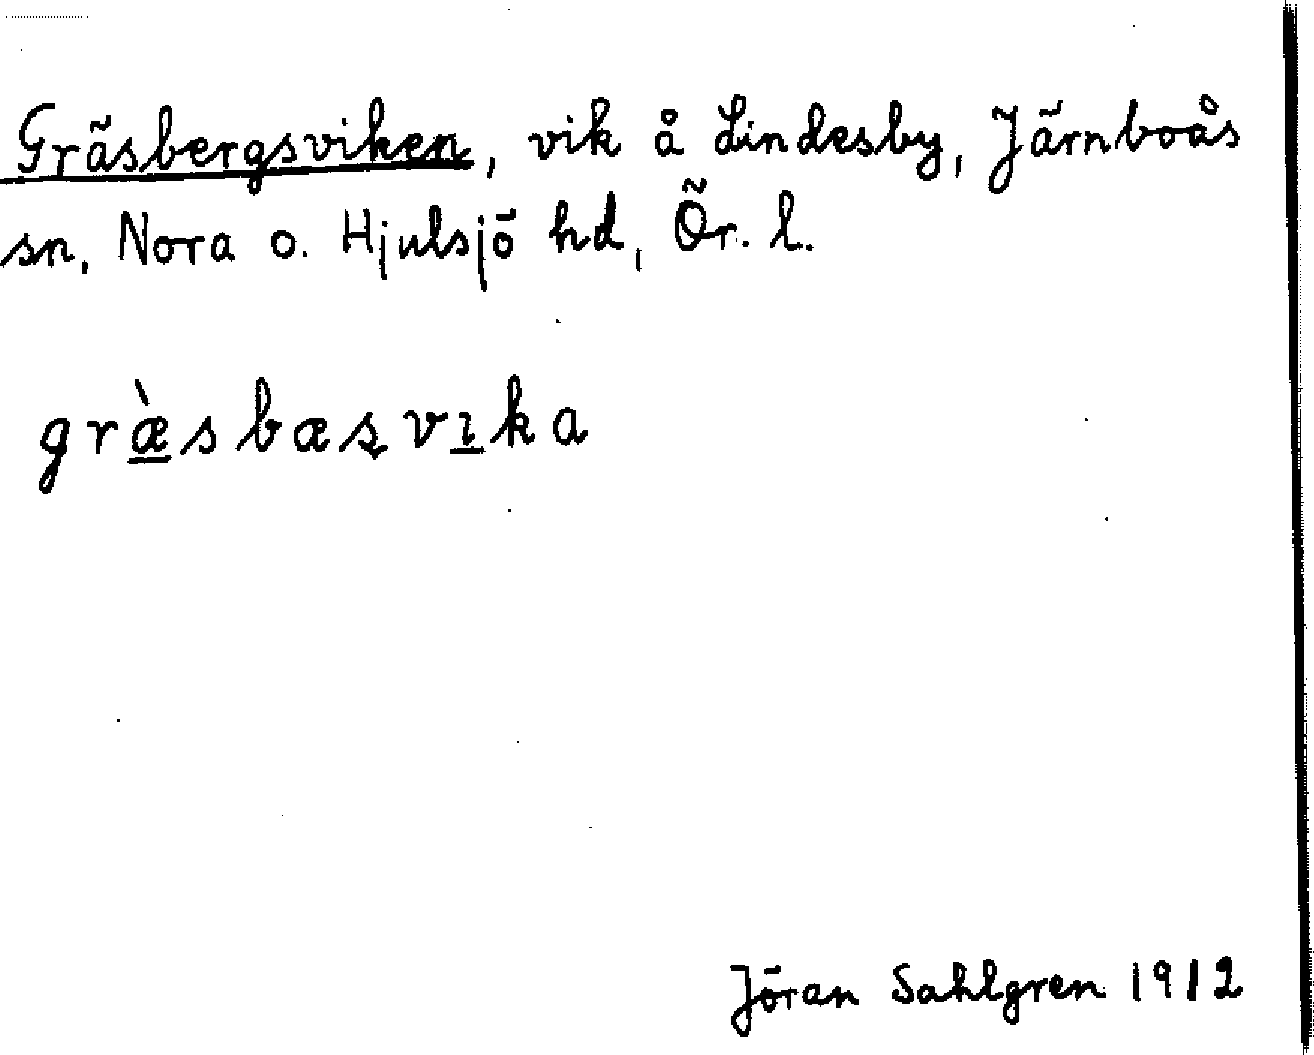 Gräsbergsviken, vik å Lindesby, Järnboås
sn, Nora o. Hjulsjö hd, Ör. l.
græ̱̀sbæʂvı̱ka
Jöran Sahlgren 1912